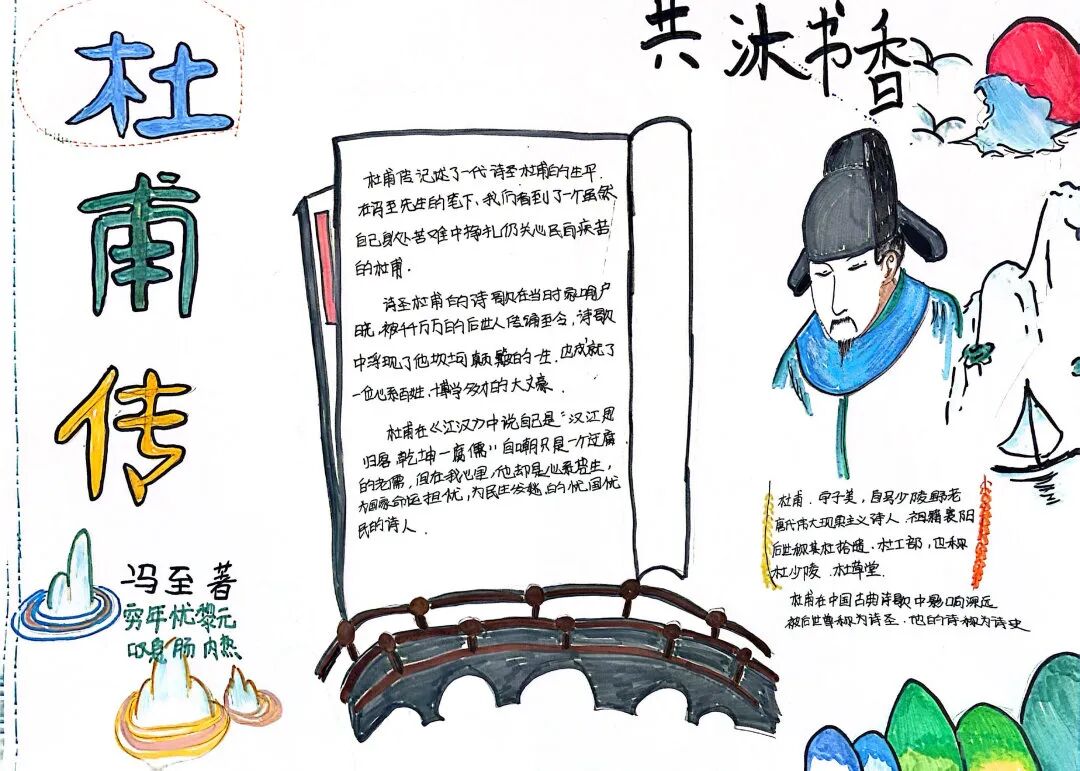 杜甫传
冯至 著
穷年忧黎元
叹息肠内热
共沐书香
杜甫传记述了一代诗圣杜甫的生平.
在冯至先生的笔下、我们看到了一个虽然
自己身处苦难中挣扎仍关心民间疾苦
的杜甫.
诗圣杜甫的诗歌在当时家喻户
晓.被千千万万的后世人传诵至今,诗歌
中浮现了他坎坷颠簸的一生.也成就了
一位心系百姓、博学多才的大文豪.
杜甫在《江汉》中说自己是"汉江思
归客 乾坤一腐儒"自嘲只是一个迂腐
的老儒,但在我心里,他却是心系苍生,
为国家命运担忧,为民生发愁的忧国忧
民的诗人.
杜甫.字子美,自号少陵野老
唐代伟大现实主义诗人.祖籍襄阳
后世称其杜拾遗.杜工部,也称
杜少陵 杜草堂.
杜甫在中国古典诗歌中影响深远
被后世尊称为诗圣.他的诗称为诗史